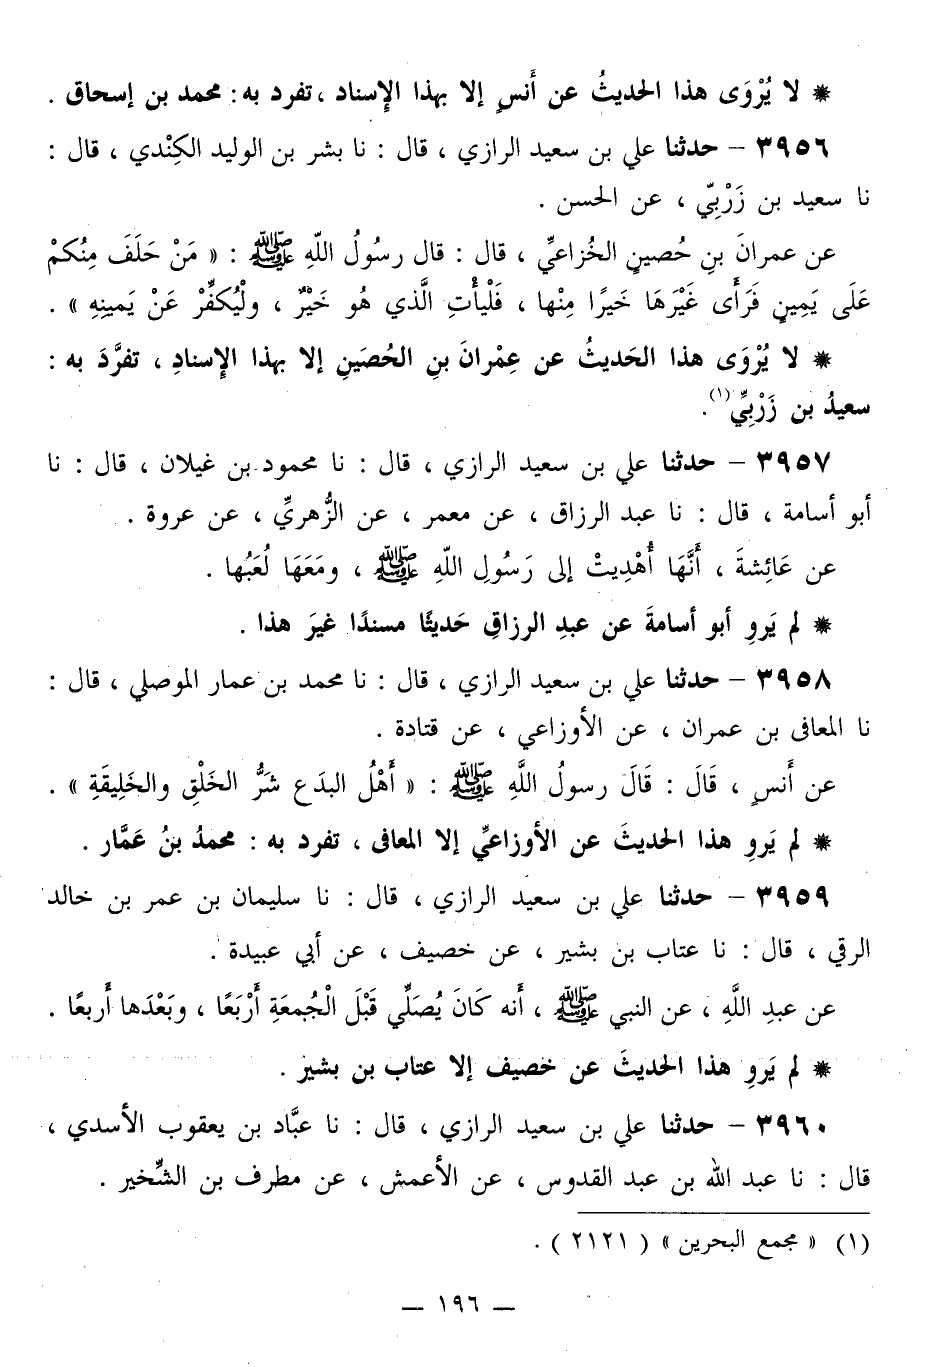 * لا يُرْوَى هذا الحديثُ عن أَنسٍ إلا بهذا الإسناد ، تفرد به : محمد بن إسحاق .
٣٩٥٦ – حدثنا علي بن سعيد الرازي ، قال : نا بشر بن الوليد الكِنْدي ، قال :
نا سعيد بن زَرْبِيّ ، عن الحسن .
عن عمرانَ بنِ حُصينٍ الخُزاعيِّ ، قال : قال رسُولُ اللَّهِ ﷺ : « مَنْ حَلَفَ مِنُكمْ
عَلَى يَمِينٍ فَرَأَى غَيْرَهَا خَيرًا مِنْها ، فَلْيأْتِ الَّذي هُو خَيْرٌ ، ولْيُكفِّرْ عَنْ يَمينِهِ » .
* لا يُرْوَى هذا الحَديثُ عن عِمْرانَ بنِ الحُصَينِ إلا بهذا الإسنادِ ، تفرَّدَ به :
سعيدُ بن زَرْبيِّ(١).
٣٩٥٧ – حدثنا علي بن سعيد الرازي ، قال : نا محمود بن غيلان ، قال : نا
أبو أسامة ، قال : نا عبد الرزاق ، عن معمر ، عن الزُّهريِّ ، عن عروة .
عن عَائِشةَ ، أَنَّهَا أُهْدِيتْ إلى رَسُولِ اللّهِ ﷺ ، ومَعَهَا لُعَبُها .
* لم يَروِ أبو أسامةَ عن عبدِ الرزاقِ حَديثًا مسندًا غيرَ هذا .
٣٩٥٨ – حدثنا علي بن سعيد الرازي ، قال : نا محمد بن عمار الموصلي ، قال :
نا المعافى بن عمران ، عن الأوزاعي ، عن قتادة .
عن أَنسٍ ، قَالَ : قَالَ رسولُ اللَّهِ ﷺ : « أَهْلُ البدَع شَرُّ الخَلْقِ والخَلِيقَةِ » .
* لم يَروِ هذا الحديثَ عن الأوزاعيِّ إلا المعافى ، تفرد به : محمدُ بنُ عَمَّار .
٣٩٥٩ – حدثنا علي بن سعيد الرازي ، قال : نا سليمان بن عمر بن خالد
الرقي ، قال : نا عتاب بن بشير ، عن خصيف ، عن أبي عبيدة .
عن عبدِ اللَّهِ ، عن النبي ﷺ ، أنه كَانَ يُصَلِّي قَبْلَ الْجُمعَةِ أَرْبَعًا ، وبَعْدَها أَربعًا .
* لم يَروِ هذا الحديثَ عن خصيف إلا عتاب بن بشير .
٣٩٦٠ – حدثنا علي بن سعيد الرازي ، قال : نا عبَّاد بن يعقوب الأسدي ،
قال : نا عبد الله بن عبد القدوس ، عن الأعمش ، عن مطرف بن الشِّخير .
(١) « مجمع البحرين » ( ٢١٢١ ) .
— ١٩٦ —